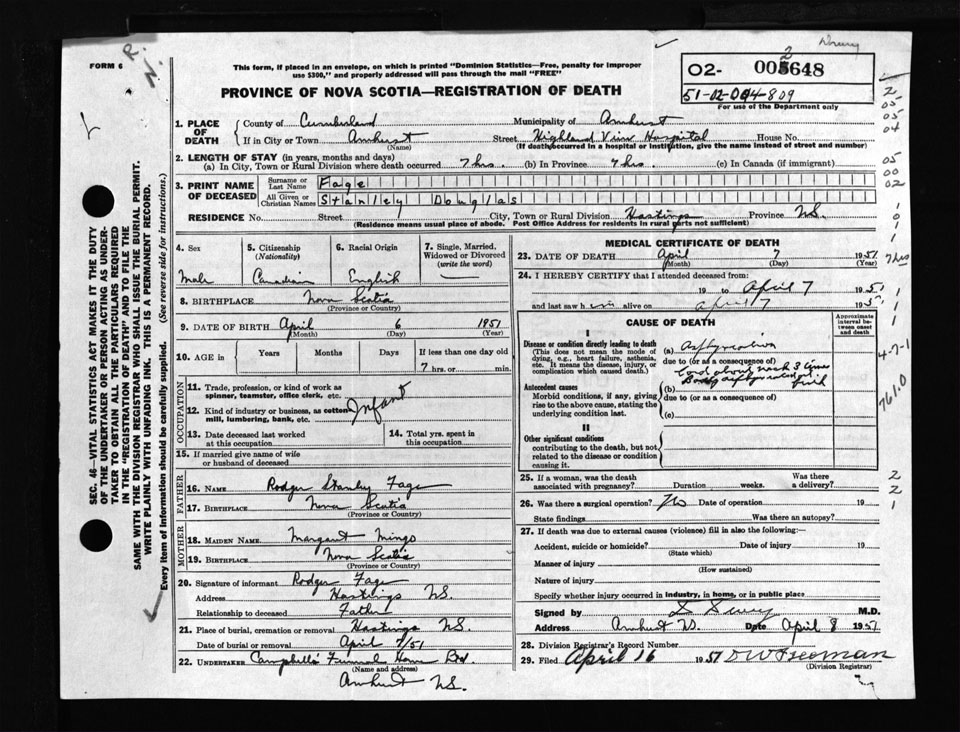 FORM 6
R.
N.
Drury
This form, if placed in an envelope, on which is printed "Dominion Statistics—Free, penalty for improper
use $300," and properly addressed will pass through the mail "FREE"
PROVINCE OF NOVA SCOTIA—REGISTRATION OF DEATH
02- 002648
51-02-004-809
For use of the Department only
1. PLACE OF DEATH County of Cumberland Municipality of Amherst
If in City or Town Amherst (Name) Street Highland View Hospital House No.
(If death occurred in a hospital or institution, give the name instead of street and number)
2. LENGTH OF STAY (in years, months and days)
(a) In City, Town or Rural Division where death occurred 7 hrs. (b) In Province 7 hrs. (c) In Canada (if immigrant)
3. PRINT NAME OF DECEASED
Surname or Last Name Fage
All Given or Christian Names Stanley Douglas
RESIDENCE No. Street City, Town or Rural Division Hastings Province NS.
(Residence means usual place of abode. Post Office Address for residents in rural parts not sufficient)
4. Sex Male
5. Citizenship (Nationality) Canadian
6. Racial Origin English
7. Single, Married, Widowed or Divorced (write the word)
8. BIRTHPLACE Nova Scotia
(Province or Country)
9. DATE OF BIRTH April 6 1951
(Month) (Day) (Year)
10. AGE in Years Months Days If less than one day old
7 hrs. or min.
OCCUPATION
11. Trade, profession, or kind of work as spinner, teamster, office clerk, etc.
Infant
12. Kind of industry or business, as cotton mill, lumbering, bank, etc.
13. Date deceased last worked at this occupation
14. Total yrs. spent in this occupation
15. If married give name of wife or husband of deceased
FATHER
16. NAME Rodger Stanley Fage
17. BIRTHPLACE Nova Scotia
(Province or Country)
MOTHER
18. MAIDEN NAME Margaret Mingo
19. BIRTHPLACE Nova Scotia
(Province or Country)
20. Signature of informant Rodger Fage
Address Hastings NS.
Relationship to deceased Father
21. Place of burial, cremation or removal Hastings NS.
Date of burial or removal April 7/51
22. UNDERTAKER Campbells Funeral Home
(Name and address)
Amherst NS.
MEDICAL CERTIFICATE OF DEATH
23. DATE OF DEATH April 7 1951
(Month) (Day) (Year)
24. I HEREBY CERTIFY that I attended deceased from:
19 to April 7 1951
and last saw him alive on April 7 1951
CAUSE OF DEATH
Approximate interval between onset and death
I
Disease or condition directly leading to death
(This does not mean the mode of dying, e.g., heart failure, asthenia, etc. It means the disease, injury, or complication which caused death.)
(a) Asphyxiation
due to (or as a consequence of)
Cord about neck 3 times
Antecedent causes
Morbid conditions, if any, giving rise to the above cause, stating the underlying condition last.
(b)
due to (or as a consequence of)
(c)
II
Other significant conditions contributing to the death, but not related to the disease or condition causing it.
25. If a woman, was the death associated with pregnancy? Duration weeks. Was there a delivery?
26. Was there a surgical operation? No Date of operation 19
State findings Was there an autopsy?
27. If death was due to external causes (violence) fill in also the following:—
Accident, suicide or homicide? Date of injury 19
(State which)
Manner of injury
(How sustained)
Nature of injury
Specify whether injury occurred in industry, in home, or in public place
Signed by M.D.
Address Amherst NS. Date April 8 1951
28. Division Registrar's Record Number
29. Filed April 16 1951 D W Freeman
(Division Registrar)
SEC. 46—VITAL STATISTICS ACT MAKES IT THE DUTY
OF THE UNDERTAKER OR PERSON ACTING AS UNDER-
TAKER TO OBTAIN ALL THE PARTICULARS REQUIRED
IN THE "REGISTRATION OF DEATH" AND TO FILE THE
SAME WITH THE DIVISION REGISTRAR WHO SHALL ISSUE THE BURIAL PERMIT.
WRITE PLAINLY WITH UNFADING INK. THIS IS A PERMANENT RECORD.
Every item of Information should be carefully supplied. (See reverse side for instructions.)
2
05
05
04
05
00
02
1
0
1
1
7 hrs
1
1
1
4-7-1
761.0
2
2
1